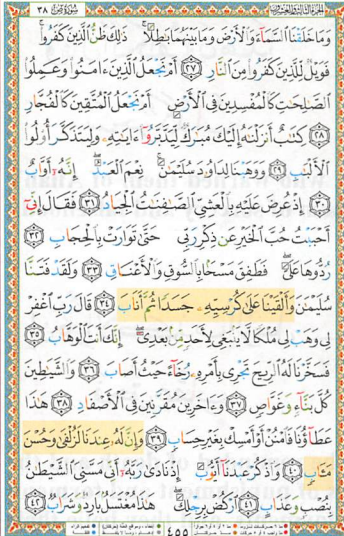 سورة ص ٣٨
وَمَا خَلَقْنَا السَّمَآءَ وَالْأَرْضَ وَمَا بَيْنَهُمَا بَٰطِلًا ۚ ذَٰلِكَ ظَنُّ الَّذِينَ كَفَرُوا ۚ
فَوَيْلٌ لِّلَّذِينَ كَفَرُوا مِنَ النَّارِ ٢٧ أَمْ نَجْعَلُ الَّذِينَ ءَامَنُوا وَعَمِلُوا
الصَّٰلِحَٰتِ كَالْمُفْسِدِينَ فِي الْأَرْضِ أَمْ نَجْعَلُ الْمُتَّقِينَ كَالْفُجَّارِ
٢٨ كِتَٰبٌ أَنزَلْنَٰهُ إِلَيْكَ مُبَٰرَكٌ لِّيَدَّبَّرُوٓا ءَايَٰتِهِۦ وَلِيَتَذَكَّرَ أُولُوا
الْأَلْبَٰبِ ٢٩ وَوَهَبْنَا لِدَاوُۥدَ سُلَيْمَٰنَ ۚ نِعْمَ الْعَبْدُ ۖ إِنَّهُۥٓ أَوَّابٌ
٣٠ إِذْ عُرِضَ عَلَيْهِ بِالْعَشِيِّ الصَّٰفِنَٰتُ الْجِيَادُ ٣١ فَقَالَ إِنِّيٓ
أَحْبَبْتُ حُبَّ الْخَيْرِ عَن ذِكْرِ رَبِّي حَتَّىٰ تَوَارَتْ بِالْحِجَابِ ٣٢
رُدُّوهَا عَلَيَّ ۖ فَطَفِقَ مَسْحًا بِالسُّوقِ وَالْأَعْنَاقِ ٣٣ وَلَقَدْ فَتَنَّا
سُلَيْمَٰنَ وَأَلْقَيْنَا عَلَىٰ كُرْسِيِّهِۦ جَسَدًا ثُمَّ أَنَابَ ٣٤ قَالَ رَبِّ اغْفِرْ
لِي وَهَبْ لِي مُلْكًا لَّا يَنۢبَغِي لِأَحَدٍ مِّنۢ بَعْدِيٓ ۖ إِنَّكَ أَنتَ الْوَهَّابُ ٣٥
فَسَخَّرْنَا لَهُ الرِّيحَ تَجْرِي بِأَمْرِهِۦ رُخَآءً حَيْثُ أَصَابَ ٣٦ وَالشَّيَٰطِينَ
كُلَّ بَنَّآءٍ وَغَوَّاصٍ ٣٧ وَءَاخَرِينَ مُقَرَّنِينَ فِي الْأَصْفَادِ ٣٨ هَٰذَا
عَطَآؤُنَا فَامْنُنْ أَوْ أَمْسِكْ بِغَيْرِ حِسَابٍ ٣٩ وَإِنَّ لَهُۥ عِندَنَا لَزُلْفَىٰ وَحُسْنَ
مَـَٔابٍ ٤٠ وَاذْكُرْ عَبْدَنَآ أَيُّوبَ إِذْ نَادَىٰ رَبَّهُۥٓ أَنِّي مَسَّنِيَ الشَّيْطَٰنُ
بِنُصْبٍ وَعَذَابٍ ٤١ ارْكُضْ بِرِجْلِكَ ۖ هَٰذَا مُغْتَسَلٌۢ بَارِدٌ وَشَرَابٌ ٤٢
٤٥٥